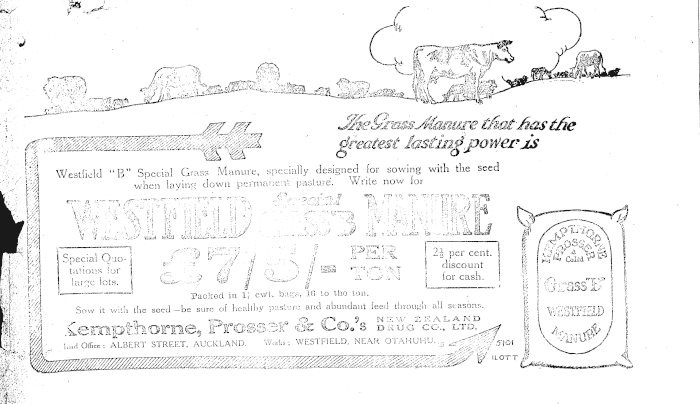 The Grass Manure that has the
greatest lasting power is
Westfield "B" Special Grass Manure, specially designed for sowing with the seed
when laying down permanent pasture. Write now for
WESTFIELD Special GRASS B MANURE
Special Quo-
tations for
large lots.
£7/5/= PER
TON
2½ per cent.
discount
for cash.
Packed in 1¼ cwt. bags, 16 to the ton.
Sow it with the seed—be sure of healthy pasture and abundant feed through all seasons.
Kempthorne, Prosser & Co.'s NEW ZEALAND
DRUG CO., LTD.
Head Office: ALBERT STREET, AUCKLAND. Works: WESTFIELD, NEAR OTAHUHU.
5101
ILOTT
KEMPTHORNE
PROSSER
& Co Ltd
Grass "B"
WESTFIELD
MANURE